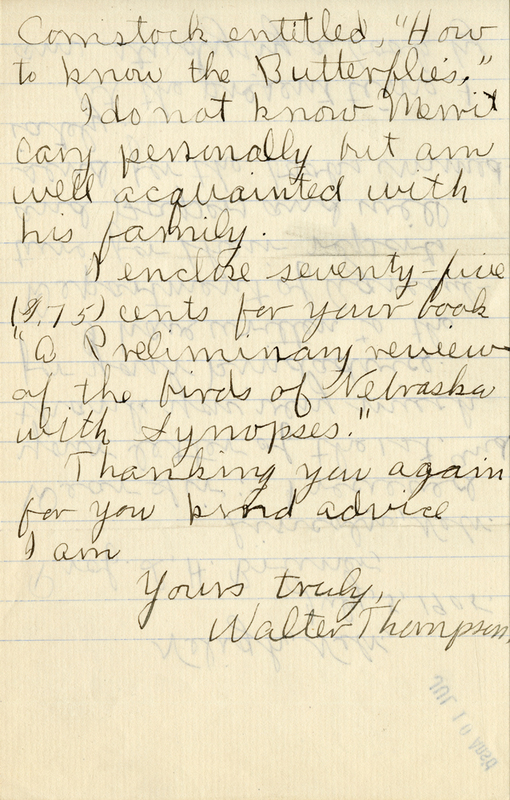 Comstock entitled, "How
to know the Butterflies."
I do not know Merrit
Cary personally but am
well acquainted with
his family.
I enclose seventy-five
($.75) cents for your book
"A Preliminary review
of the birds of Nebraska
with Synopses."
Thanking you again
for you kind advice
I am
Yours truly,
Walter Thompson.